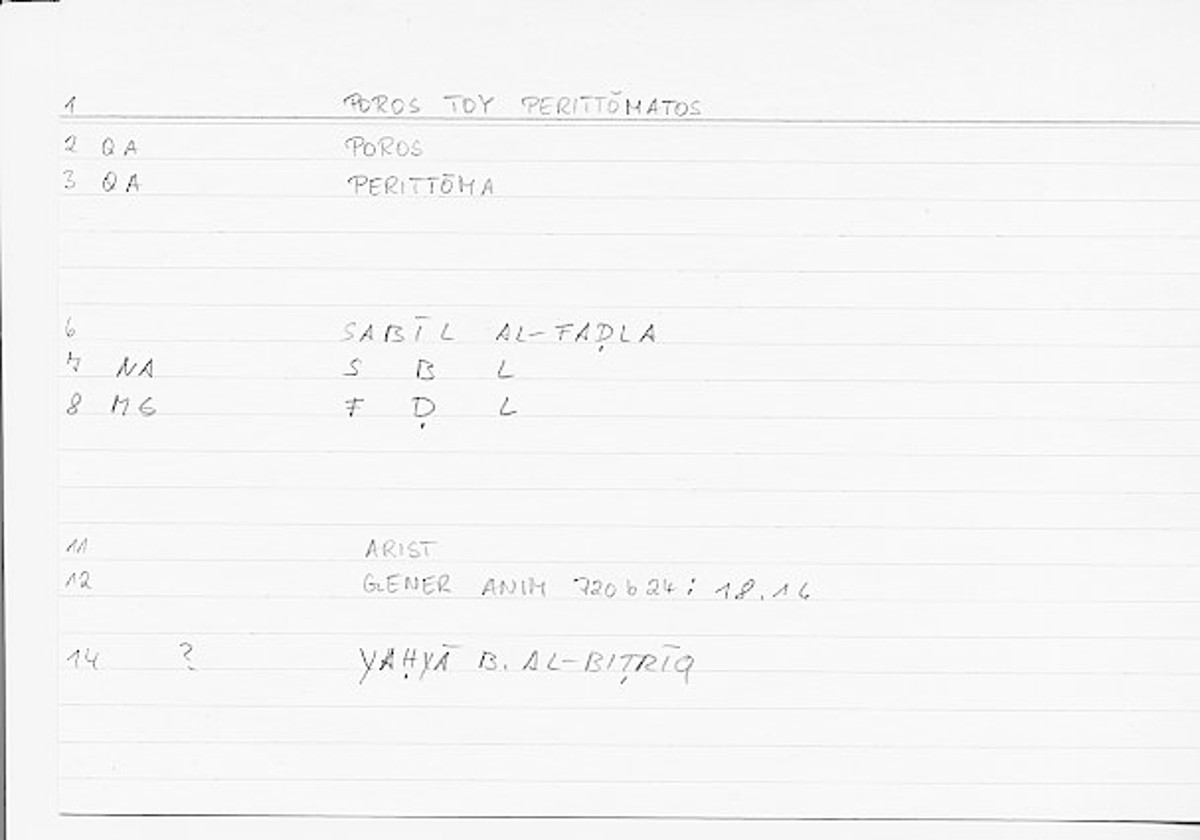 1 POROS TOY PERITTŌMATOS
2 QA POROS
3 QA PERITTŌMA
6 SABĪL AL-FAḌLA
7 NA S B L
8 MG F Ḍ L
11 ARIST
12 GENER ANIM 720 b 24 : 18.16
14 ? YAḤYĀ B. AL-BIṬRĪQ